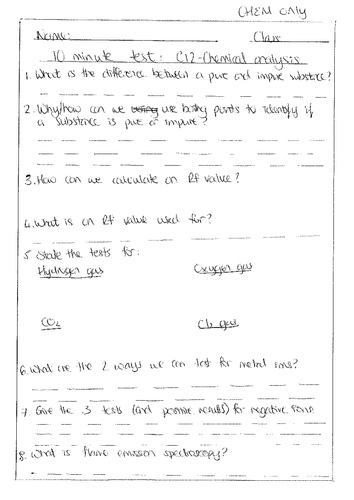 CHEM only
Name: Class
10 minute test: C12-Chemical analysis
1. What is the difference between a pure and impure substance?
2. Why/how can we use boiling points to identify if
a substance is pure or impure?
3. How can we calculate an Rf value?
4. What is an Rf value used for?
5. State the tests for:
Hydrogen gas Oxygen gas
CO2 Cl2 gas
6. What are the 2 ways we can test for metal ions?
7. Give the 3 tests (and positive results) for negative ions
8. What is flame emission spectroscopy?